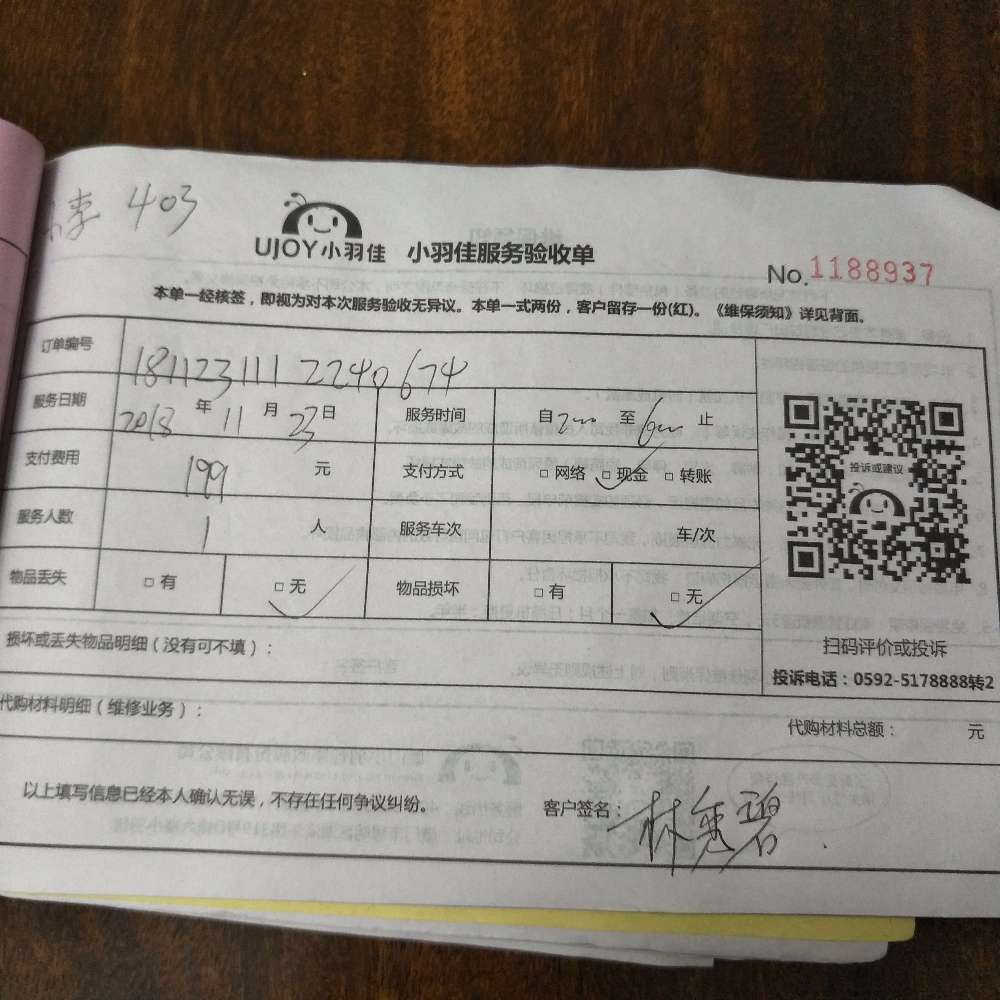 李 403
UJOY小羽佳 小羽佳服务验收单
No.1188937
本单一经核签，即视为对本次服务验收无异议。本单一式两份，客户留存一份(红)。《维保须知》详见背面。
订单编号 181123111 2240674
服务日期 2018 年 11 月 23 日 服务时间 自 至 止
支付费用 199 元 支付方式 □ 网络 □ 现金 □ 转账
服务人数 1 人 服务车次 车/次
物品丢失 □ 有 □ 无 物品损坏 □ 有 □ 无
投诉或建议
扫码评价或投诉
投诉电话：0592-5178888转2
损坏或丢失物品明细（没有可不填）：
代购材料明细（维修业务）：
代购材料总额： 元
以上填写信息已经本人确认无误，不存在任何争议纠纷。
客户签名： 林 碧